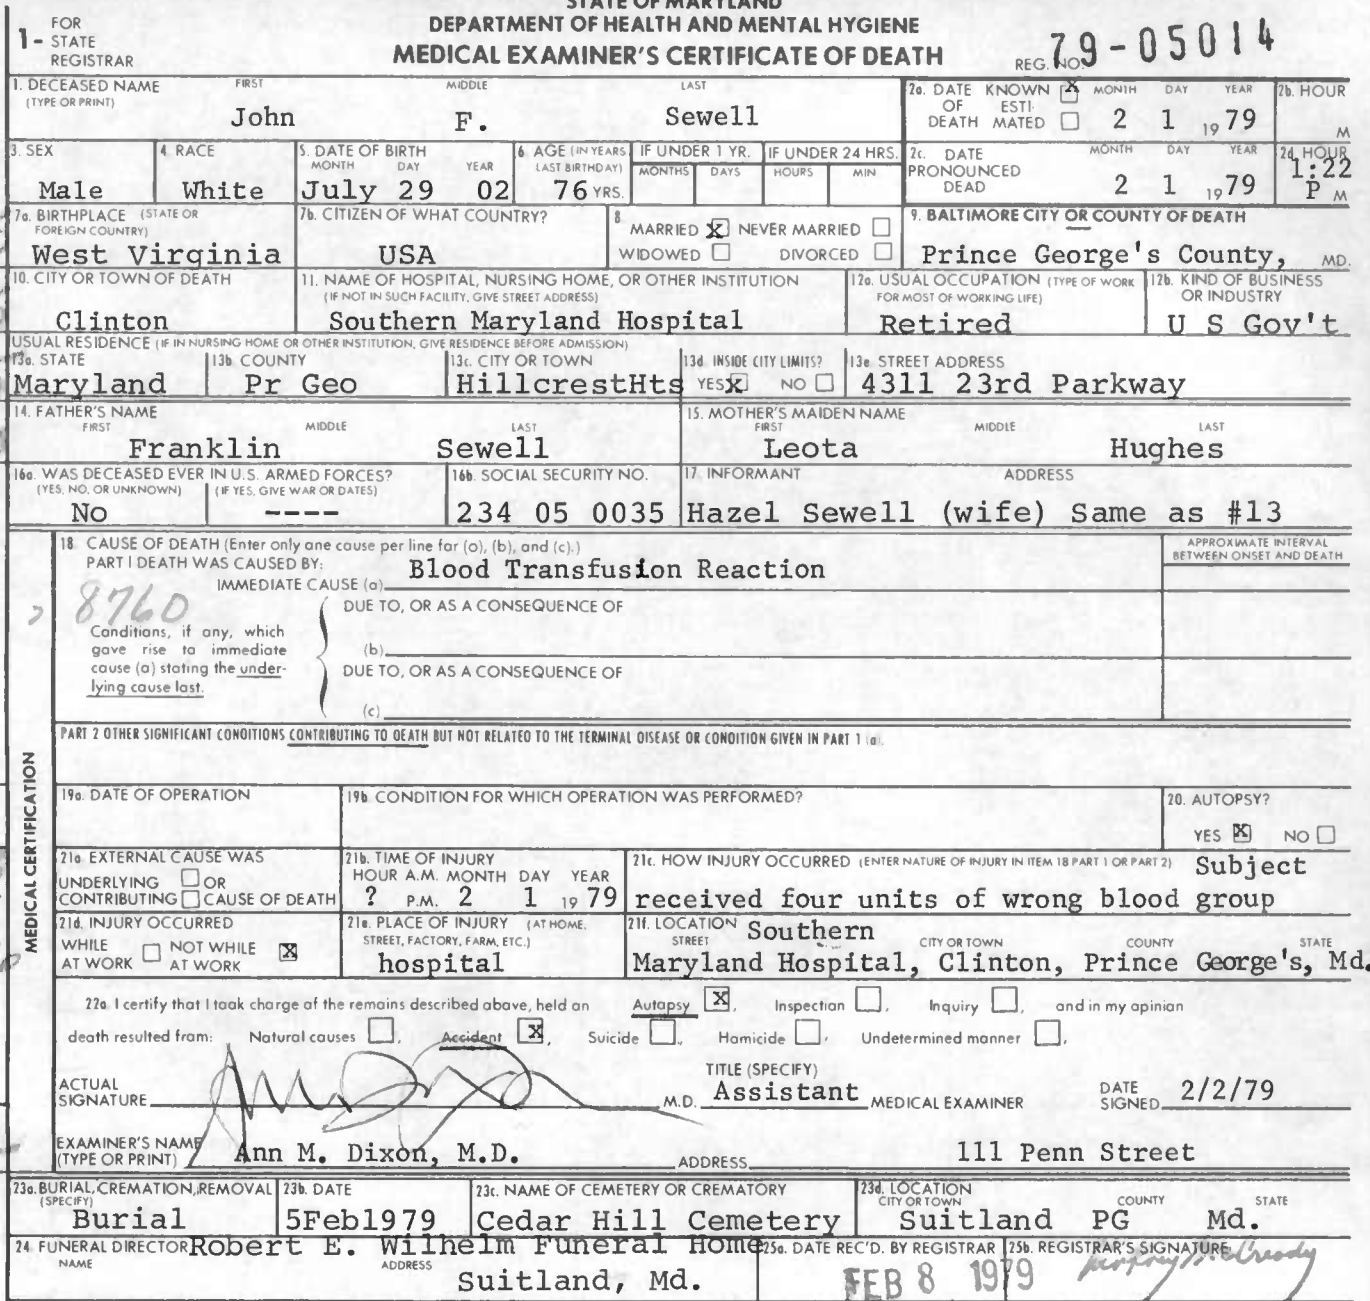 STATE OF MARYLAND
DEPARTMENT OF HEALTH AND MENTAL HYGIENE
MEDICAL EXAMINER'S CERTIFICATE OF DEATH
1- FOR STATE REGISTRAR
REG. NO. 79-05014
1. DECEASED NAME (TYPE OR PRINT) FIRST MIDDLE LAST
John F. Sewell
2a. DATE OF DEATH KNOWN X ESTIMATED MONTH DAY YEAR
2 1 1979
2b. HOUR
M
3. SEX
Male
4. RACE
White
5. DATE OF BIRTH MONTH DAY YEAR
July 29 02
6. AGE (IN YEARS LAST BIRTHDAY)
76 YRS.
IF UNDER 1 YR. MONTHS DAYS
IF UNDER 24 HRS. HOURS MIN
2c. DATE PRONOUNCED DEAD MONTH DAY YEAR
2 1 1979
2d. HOUR
1:22
P M
7a. BIRTHPLACE (STATE OR FOREIGN COUNTRY)
West Virginia
7b. CITIZEN OF WHAT COUNTRY?
USA
8. MARRIED X NEVER MARRIED
WIDOWED DIVORCED
9. BALTIMORE CITY OR COUNTY OF DEATH
Prince George's County, MD.
10. CITY OR TOWN OF DEATH
Clinton
11. NAME OF HOSPITAL, NURSING HOME, OR OTHER INSTITUTION
(IF NOT IN SUCH FACILITY, GIVE STREET ADDRESS)
Southern Maryland Hospital
12a. USUAL OCCUPATION (TYPE OF WORK FOR MOST OF WORKING LIFE)
Retired
12b. KIND OF BUSINESS OR INDUSTRY
U S Gov't
USUAL RESIDENCE (IF IN NURSING HOME OR OTHER INSTITUTION, GIVE RESIDENCE BEFORE ADMISSION)
13a. STATE
Maryland
13b. COUNTY
Pr Geo
13c. CITY OR TOWN
HillcrestHts
13d. INSIDE CITY LIMITS?
YES X NO
13e. STREET ADDRESS
4311 23rd Parkway
14. FATHER'S NAME
FIRST MIDDLE LAST
Franklin Sewell
15. MOTHER'S MAIDEN NAME
FIRST MIDDLE LAST
Leota Hughes
16a. WAS DECEASED EVER IN U.S. ARMED FORCES?
(YES, NO, OR UNKNOWN) (IF YES, GIVE WAR OR DATES)
No ----
16b. SOCIAL SECURITY NO.
234 05 0035
17. INFORMANT ADDRESS
Hazel Sewell (wife) Same as #13
18. CAUSE OF DEATH (Enter only one cause per line for (a), (b), and (c).)
PART I DEATH WAS CAUSED BY:
IMMEDIATE CAUSE (a) Blood Transfusion Reaction
APPROXIMATE INTERVAL BETWEEN ONSET AND DEATH
8760
Conditions, if any, which gave rise to immediate cause (a) stating the underlying cause last.
DUE TO, OR AS A CONSEQUENCE OF
(b)
DUE TO, OR AS A CONSEQUENCE OF
(c)
PART 2 OTHER SIGNIFICANT CONDITIONS CONTRIBUTING TO DEATH BUT NOT RELATED TO THE TERMINAL DISEASE OR CONDITION GIVEN IN PART 1 (a).
MEDICAL CERTIFICATION
19a. DATE OF OPERATION
19b. CONDITION FOR WHICH OPERATION WAS PERFORMED?
20. AUTOPSY?
YES X NO
21a. EXTERNAL CAUSE WAS
UNDERLYING OR
CONTRIBUTING CAUSE OF DEATH
21b. TIME OF INJURY
HOUR A.M. MONTH DAY YEAR
? P.M. 2 1 1979
21c. HOW INJURY OCCURRED (ENTER NATURE OF INJURY IN ITEM 18 PART 1 OR PART 2) Subject
received four units of wrong blood group
21d. INJURY OCCURRED
WHILE AT WORK NOT WHILE AT WORK X
21e. PLACE OF INJURY (AT HOME, STREET, FACTORY, FARM, ETC.)
hospital
21f. LOCATION Southern
STREET CITY OR TOWN COUNTY STATE
Maryland Hospital, Clinton, Prince George's, Md.
22a. I certify that I took charge of the remains described above, held an Autopsy X, Inspection , Inquiry , and in my opinion
death resulted from: Natural causes , Accident X, Suicide , Homicide , Undetermined manner .
ACTUAL SIGNATURE M.D.
TITLE (SPECIFY)
Assistant MEDICAL EXAMINER
DATE SIGNED 2/2/79
EXAMINER'S NAME (TYPE OR PRINT) Ann M. Dixon, M.D.
ADDRESS 111 Penn Street
23a. BURIAL, CREMATION, REMOVAL (SPECIFY)
Burial
23b. DATE
5Feb1979
23c. NAME OF CEMETERY OR CREMATORY
Cedar Hill Cemetery
23d. LOCATION
CITY OR TOWN COUNTY STATE
Suitland PG Md.
24. FUNERAL DIRECTOR Robert E. Wilhelm Funeral Home
NAME ADDRESS
Suitland, Md.
25a. DATE REC'D. BY REGISTRAR
FEB 8 1979
25b. REGISTRAR'S SIGNATURE